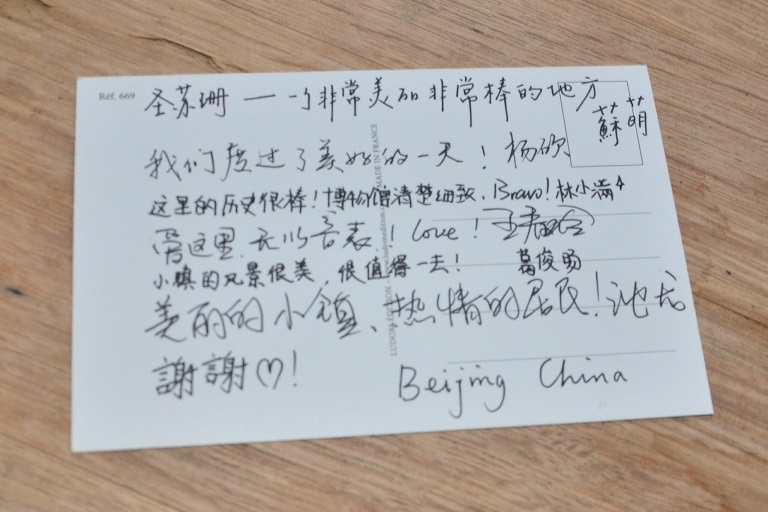 Réf. 669
圣苏珊 — 一个非常美的 非常棒的地方
蘇萌
我们度过了美好的一天！杨欣
这里的历史很棒！博物馆清楚细致、Bravo！林小满
爱这里 无以言表！Love！
小镇的风景很美，很值得一去！ 葛俊勇
美丽的小镇、热情的居民！
謝謝♡！
Beijing China
MADE IN FRANCE